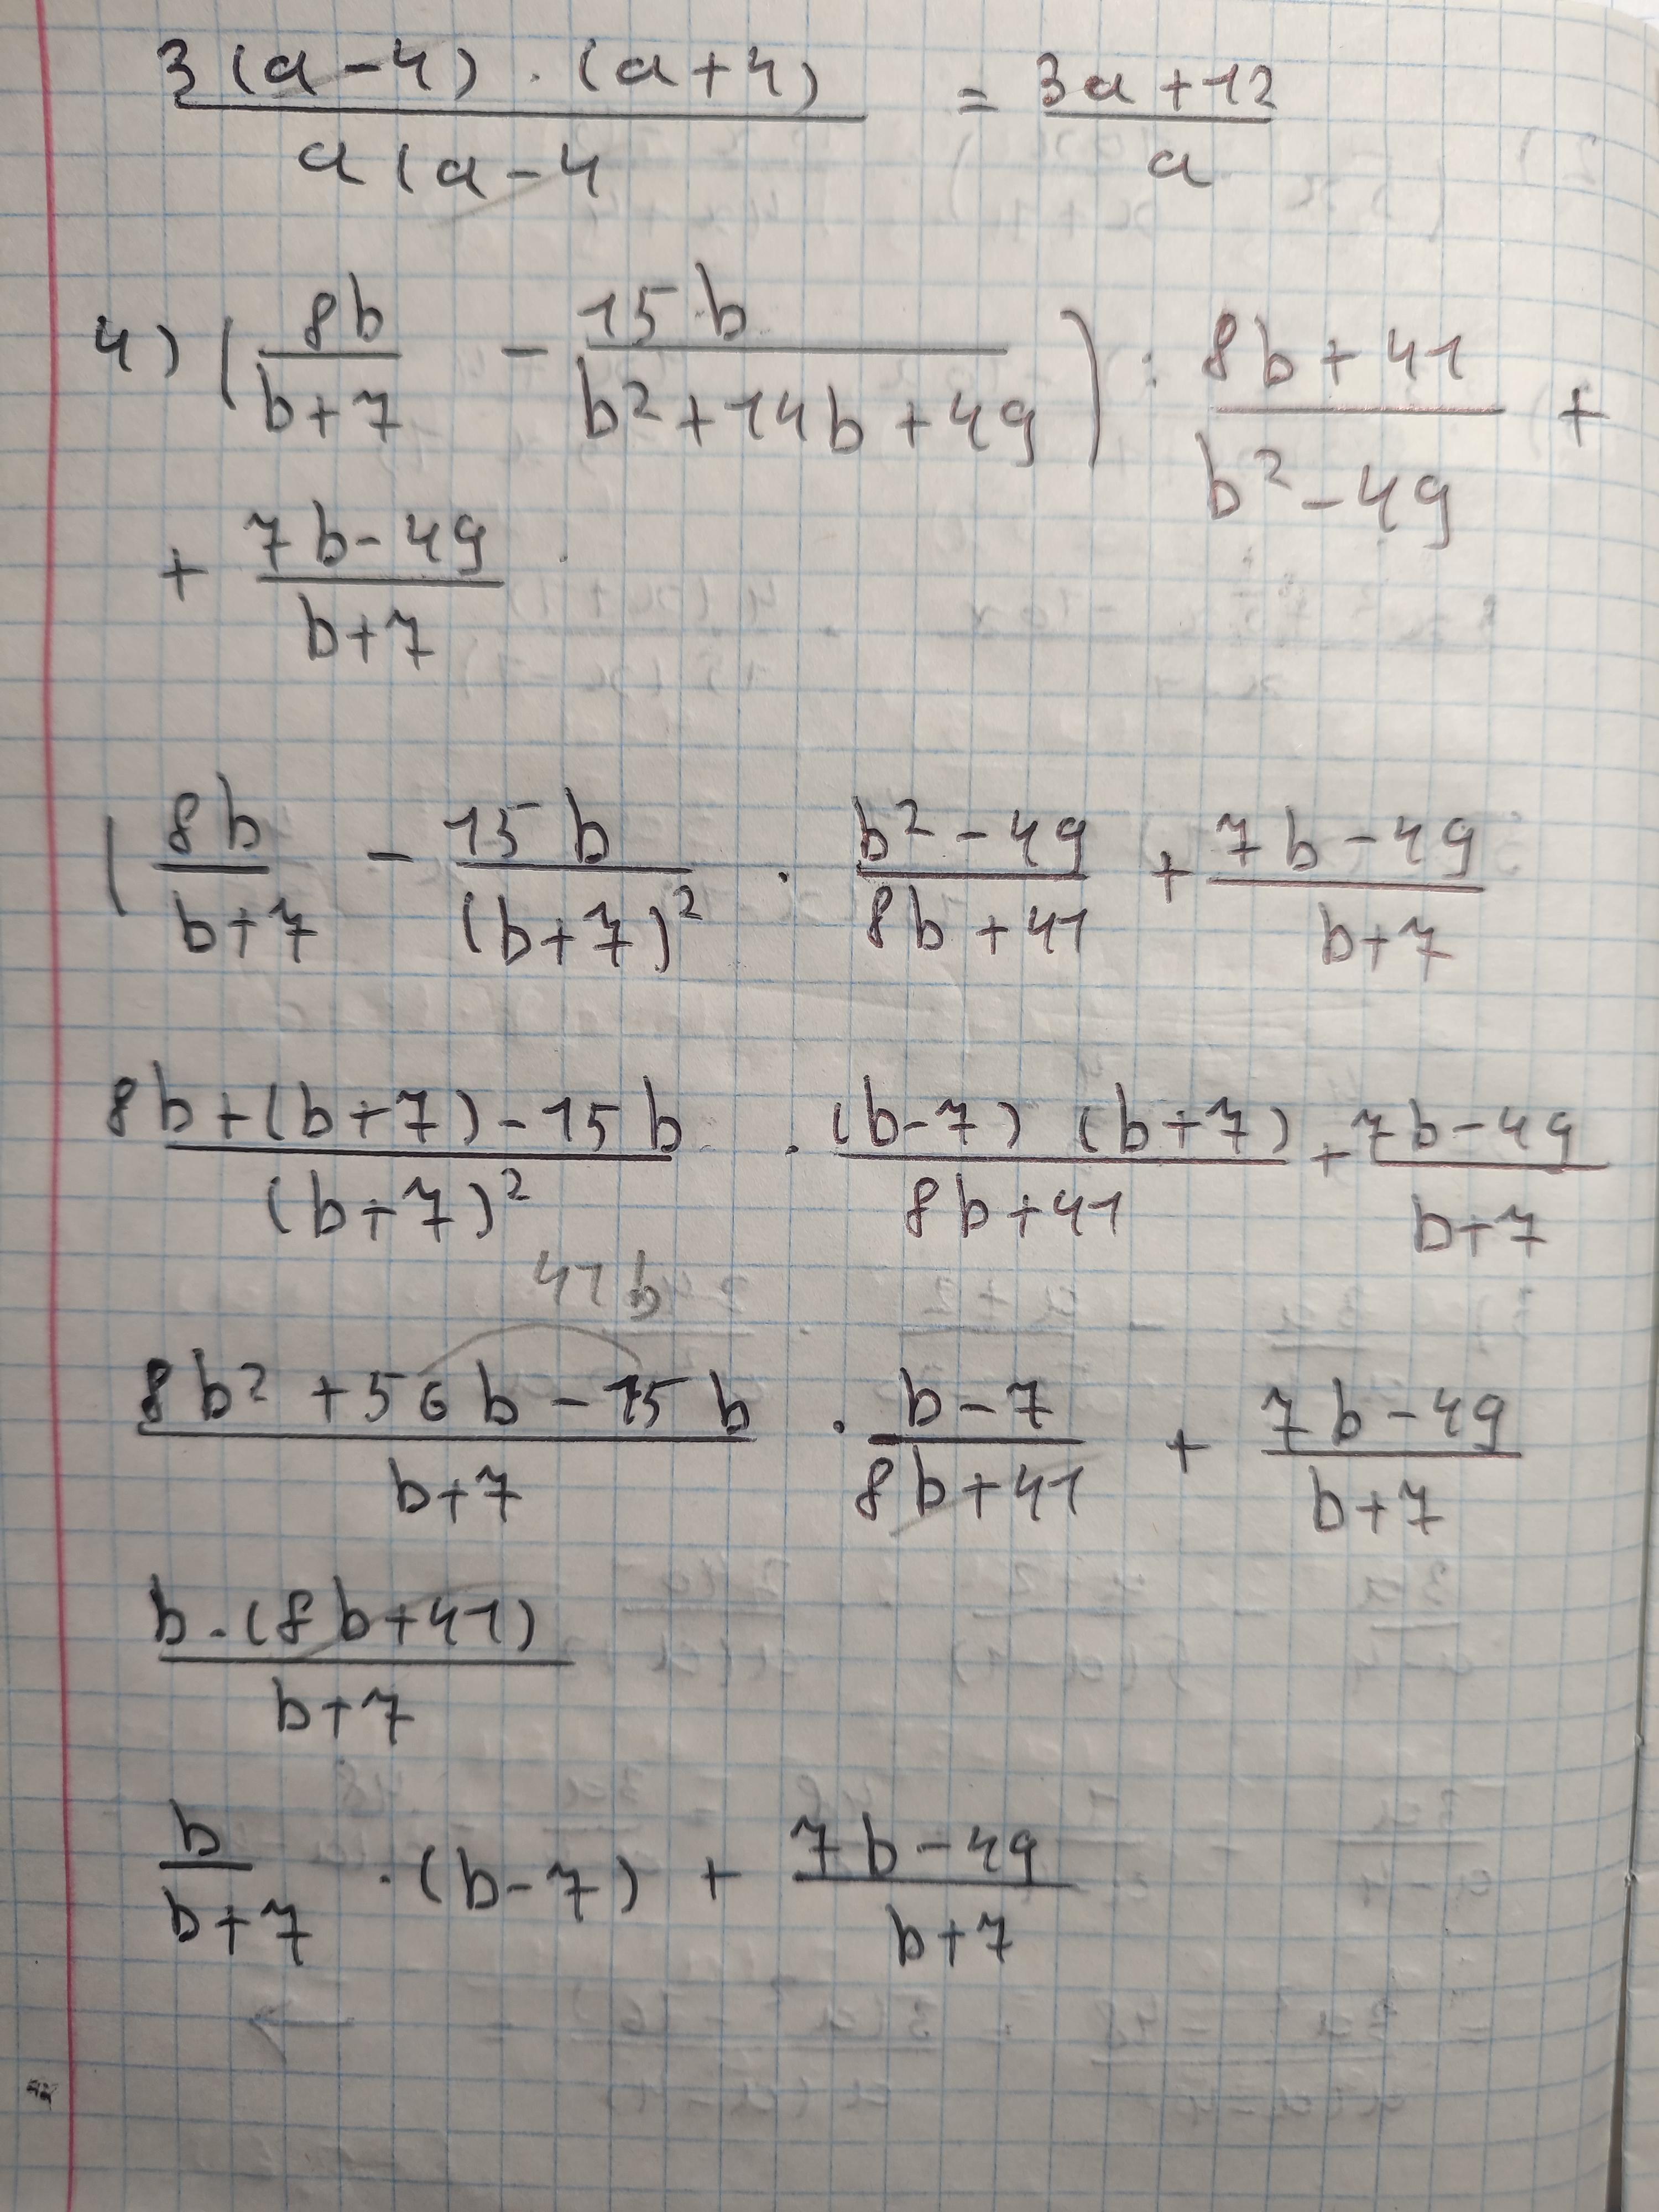 3(a-4)·(a+4) / a(a-4 = 3a+12 / a
4) (8b / b+7 - 15b / b²+14b+49) : 8b+41 / b²-49 +
+ 7b-49 / b+7
(8b / b+7 - 15b / (b+7)² · b²-49 / 8b+41 + 7b-49 / b+7
8b+(b+7)-15b / (b+7)² · (b-7)(b+7) / 8b+41 + 7b-49 / b+7
41b
8b²+56b-15b / b+7 · b-7 / 8b+41 + 7b-49 / b+7
b·(8b+41) / b+7
b / b+7 ·(b-7) + 7b-49 / b+7